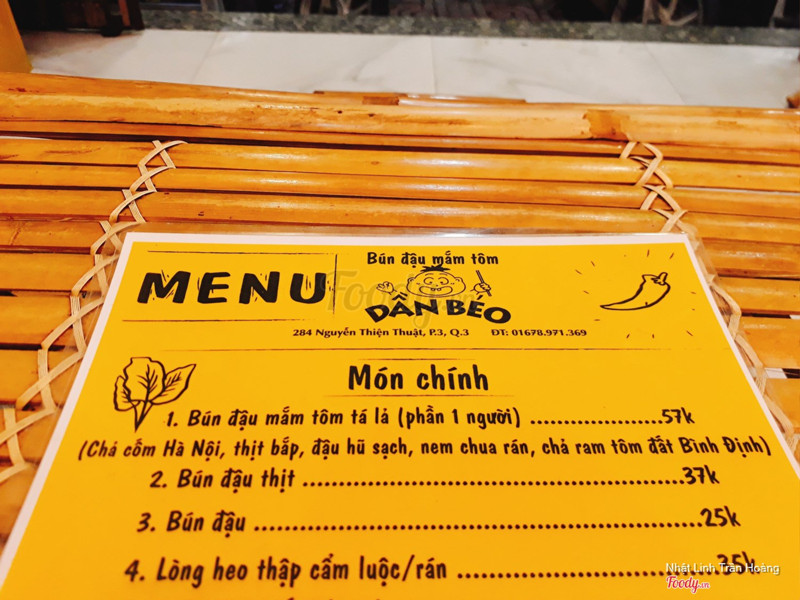 Bún đậu mắm tôm
MENU
DẦN BÉO
284 Nguyễn Thiện Thuật, P.3, Q.3 ĐT: 01678.971.369
Món chính
1. Bún đậu mắm tôm tá lả (phần 1 người) ..................57k
(Chả cốm Hà Nội, thịt bắp, đậu hũ sạch, nem chua rán, chả ram tôm đất Bình Định)
2. Bún đậu thịt ......................................................37k
3. Bún đậu ................................................................25k
4. Lòng heo thập cẩm luộc/rán ....................................35k
Foody.vn
Nhất Linh Trần Hoàng
Foody.vn